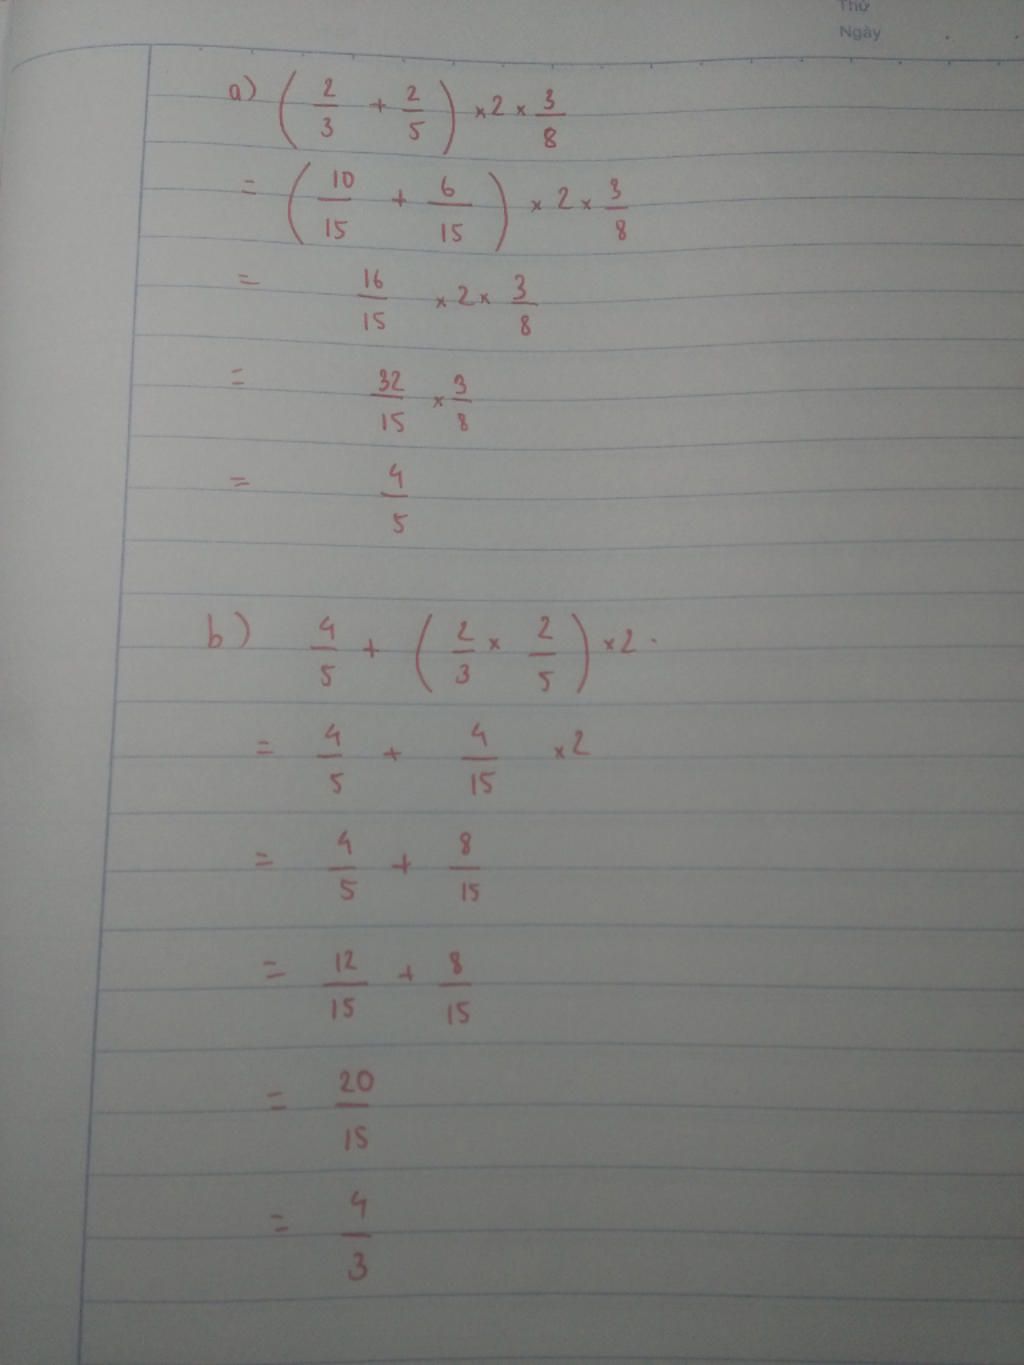 Thứ
Ngày
a) (2/3 + 2/5) × 2 × 3/8
= (10/15 + 6/15) × 2 × 3/8
= 16/15 × 2 × 3/8
= 32/15 × 3/8
= 4/5
b) 4/5 + (2/3 × 2/5) × 2.
= 4/5 + 4/15 × 2
= 4/5 + 8/15
= 12/15 + 8/15
= 20/15
= 4/3